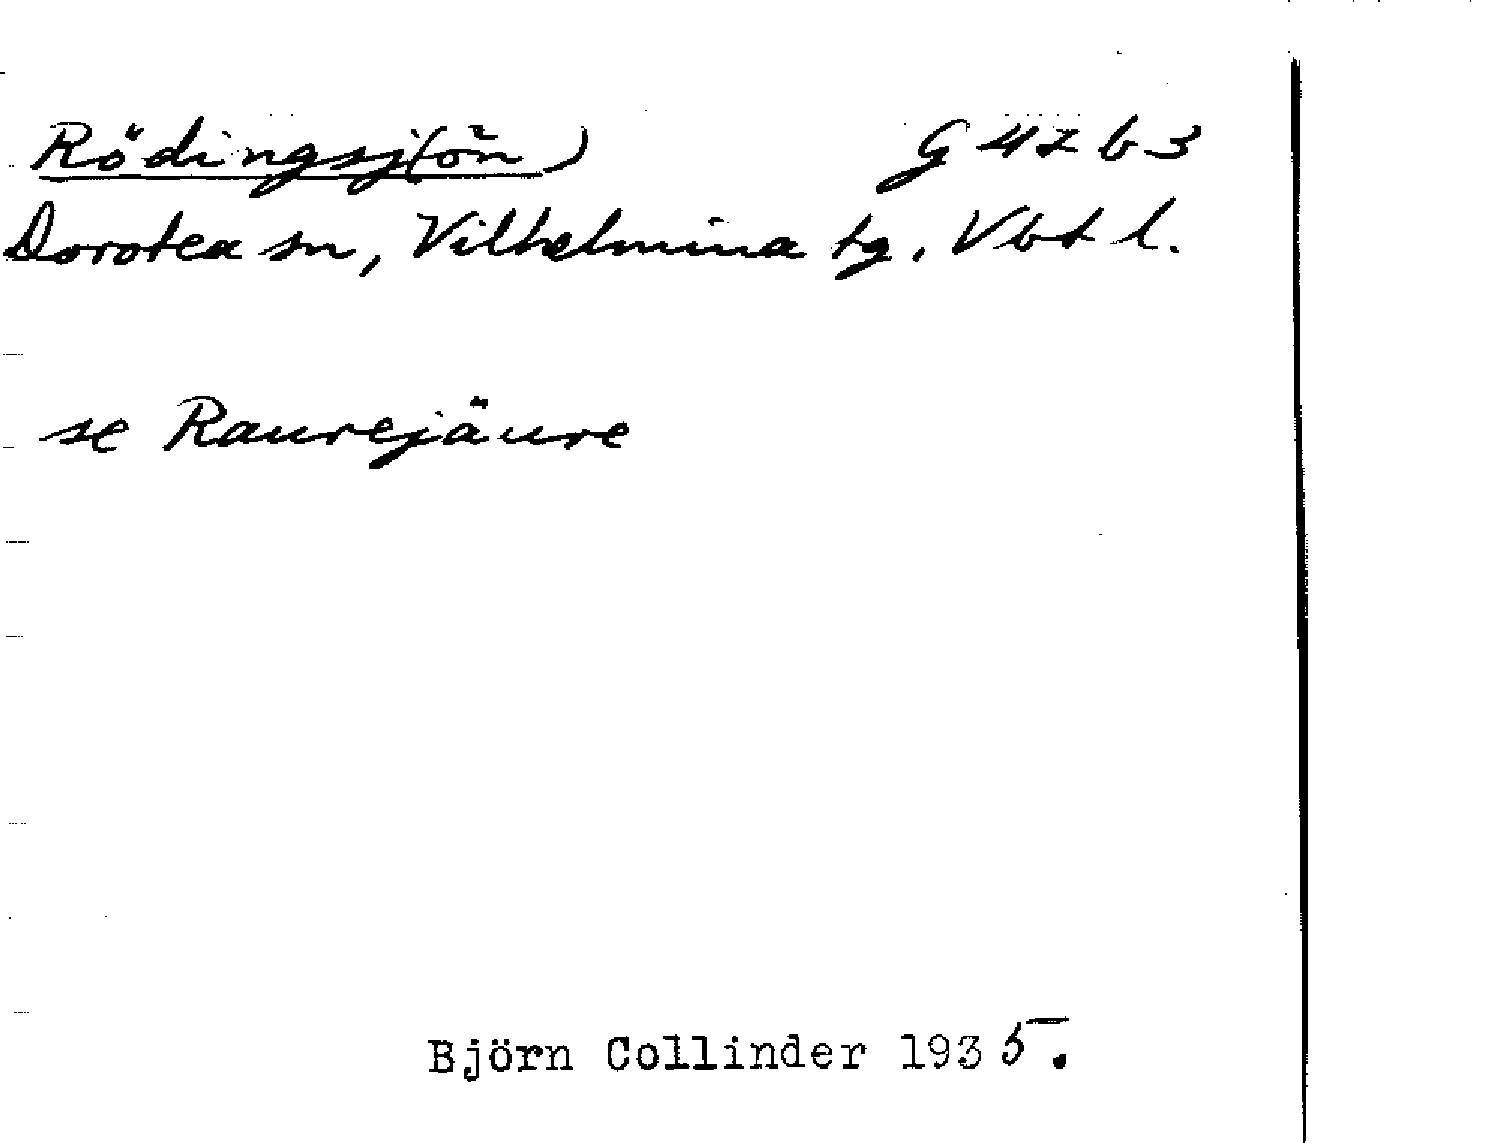 Rödingsj(ön)                G 47 b 3
Dorotea sn, Vilhelmina tg. Vbt l.
se Raurejäure
Björn Collinder 1935.